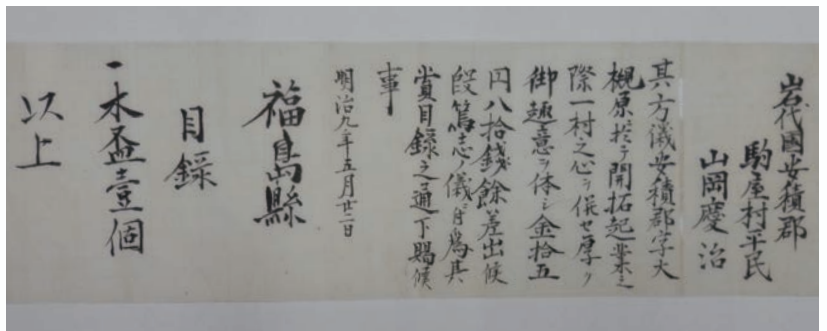 岩代國安積郡
駒屋村平民
山岡慶治
其方儀安積郡字大
槻原於テ開拓起業之
際一村之心ヲ併セ厚ク
御趣意ヲ体シ金拾五
円八拾銭餘差出候
段篤志ノ儀ニ付為其
賞目録之通下賜候
事
明治九年五月廿二日
福島縣
目録
一木盃壹個
以上